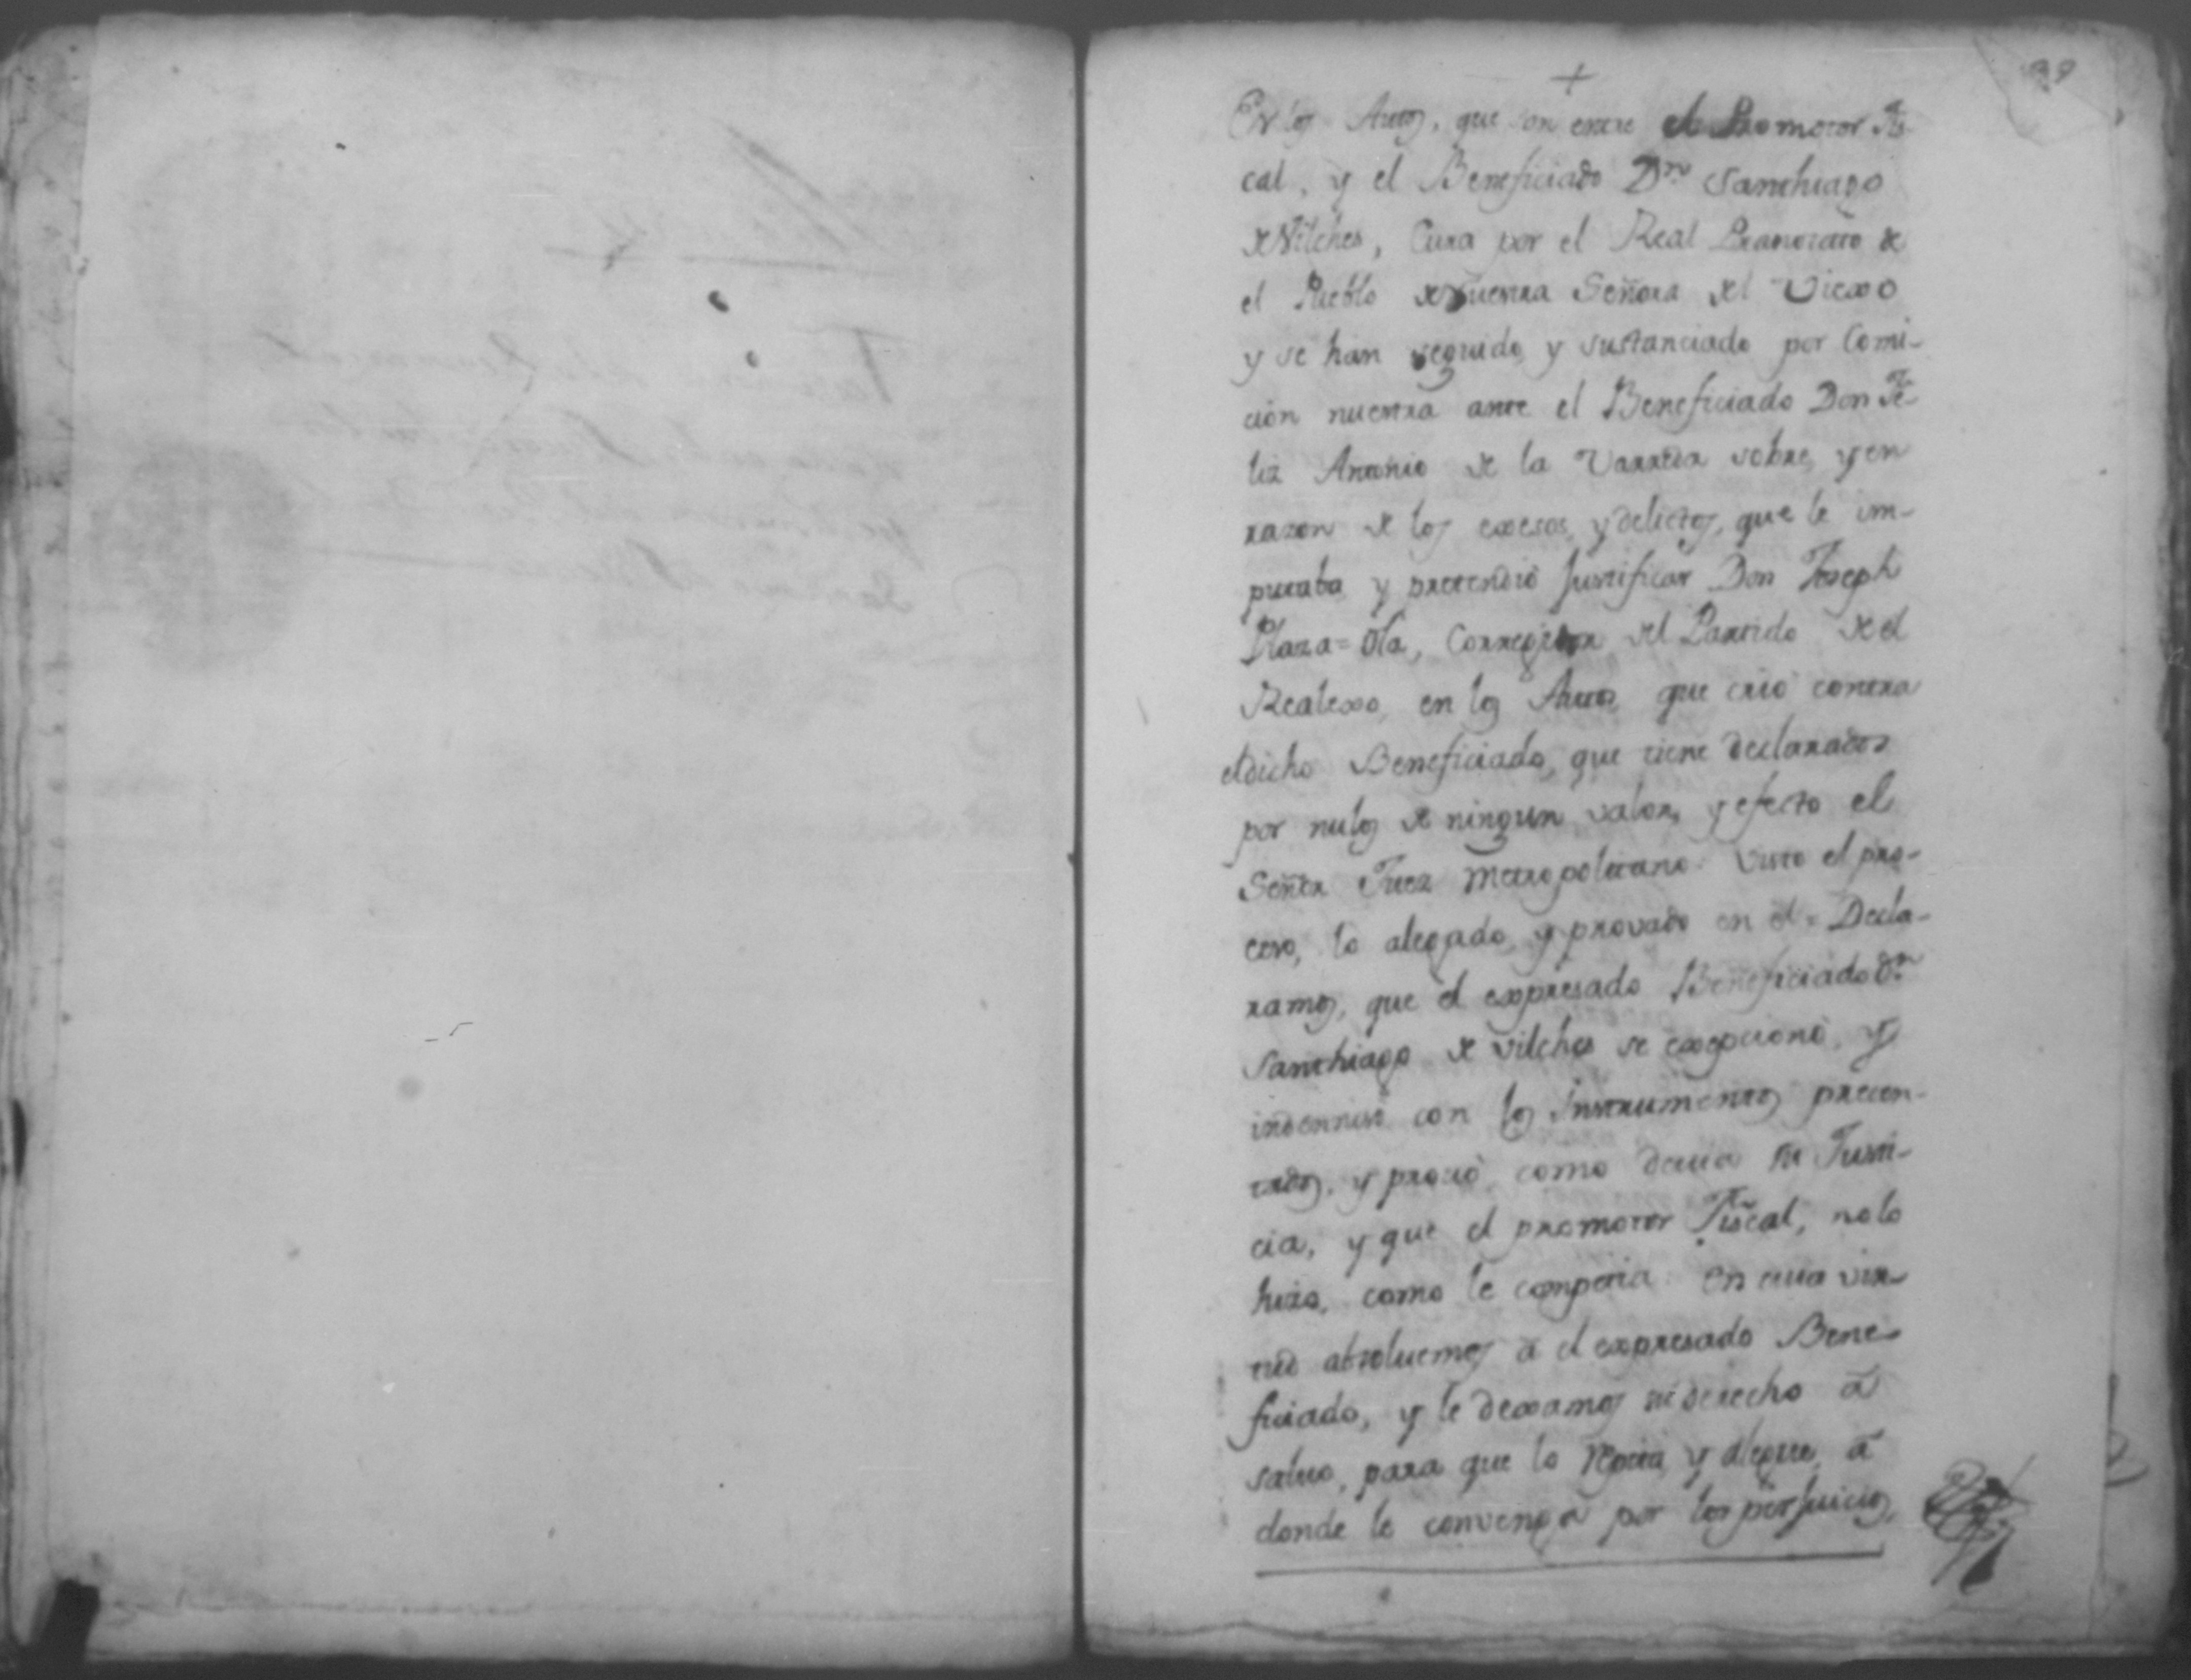 +
39
En los Autos, que son entre el Promotor Fis-
cal, y el Beneficiado Dn. Santhiago
de Vilches, Cura por el Real Patronato de
el Pueblo de Nuestra Señora del Viexo
y se han seguido, y sustanciado por Comi-
cion nuestra ante el Beneficiado Don Fe-
liz Antonio de la Varreda sobre, y en
razon de los excesos, y delictos, que le im-
putaba, y pretendió Justificar Don Joseph
Plaza=Ola, Corregidor del Partido de el
Realexo, en los Autos, que crió contra
el dicho Beneficiado, que tiene declarados
por nulos de ningun valor, y efecto el
Señor Juez Metropolitano. Visto el pro-
ceso, lo alegado, y provado en el = Decla-
ramos, que el expresado Beneficiado Dn.
Santhiago de Vilches se excepcionó, y
indemnisó con los Instrumentos presen-
tados, y provó, como devia su Justi-
cia, y que el promotor Fiscal, no lo
hizo, como le competia. En cuia vir-
tud absoluemos á el expresado Bene-
ficiado, y le dexamos su derecho á
saluo, para que lo repita, y alegue, á
donde le convenga por los perjuicios,